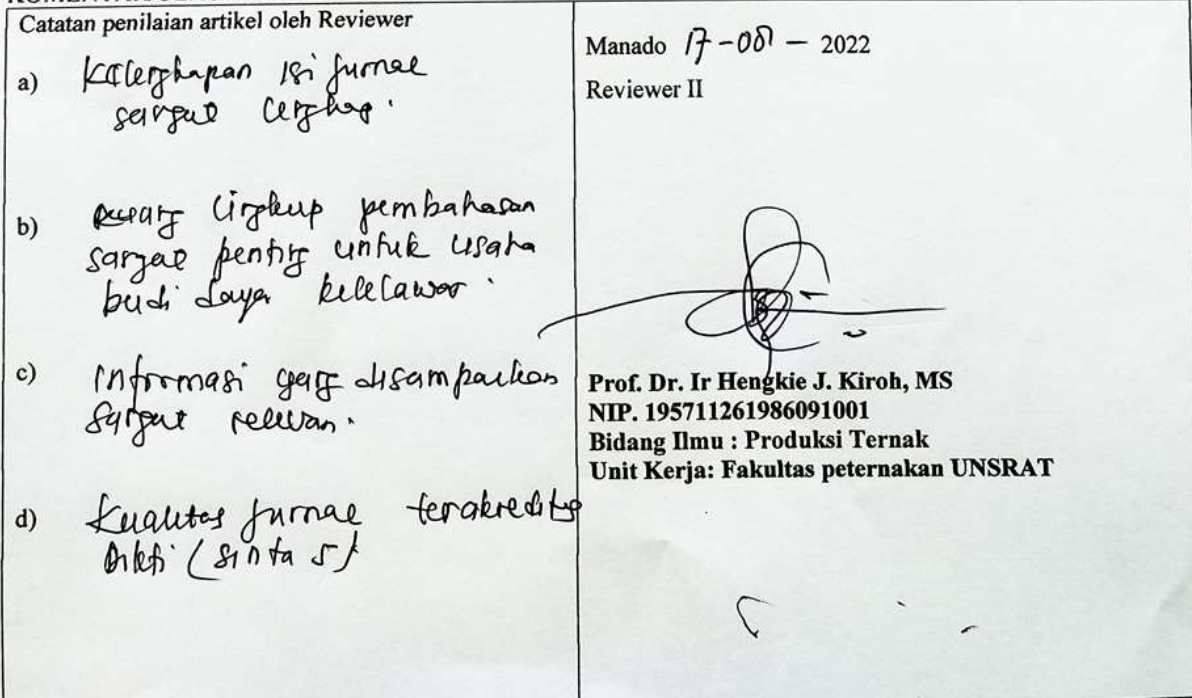 Catatan penilaian artikel oleh Reviewer
a) Kelengkapan isi jurnal
sangat lengkap.
b) Ruang lingkup pembahasan
sangat penting untuk usaha
budi daya kelelawar.
c) Informasi yang disampaikan
sangat relevan.
d) Kualitas jurnal terakreditasi
Dikti (Sinta 5)
Manado 17-08 - 2022
Reviewer II
Prof. Dr. Ir Hengkie J. Kiroh, MS
NIP. 195711261986091001
Bidang Ilmu : Produksi Ternak
Unit Kerja: Fakultas peternakan UNSRAT